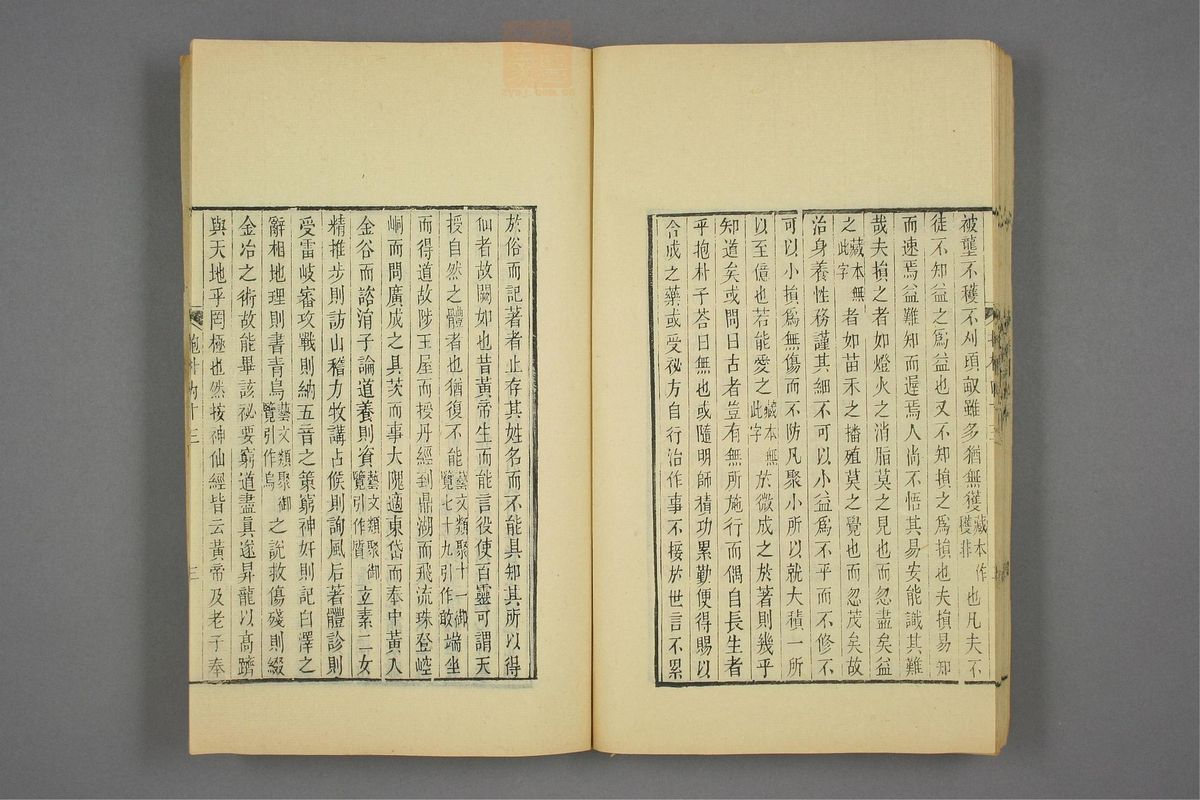 被壟不穫不刈頃畝雖多猶無獲藏本作穫非也凡夫不
徒不知益之爲益也又不知損之爲損也夫損易知
而速焉益難知而遲焉人尚不悟其易安能識其難
哉夫損之者如燈火之消脂莫之見也而忽盡矣益
之藏本無此字者如苗禾之播殖莫之覺也而忽茂矣故
治身養性務謹其細不可以小益爲不平而不修不
可以小損爲無傷而不防凡聚小所以就大積一所
以至億也若能愛之藏本無此字於微成之於著則幾乎
知道矣或問曰古者豈有無所施行而偶自長生者
乎抱朴子荅曰無也或隨明師積功累勤便得賜以
合成之藥或受祕方自行治作事不接於世言不累
於俗而記著者止存其姓名而不能具知其所以得
仙者故闕如也昔黃帝生而能言役使百靈可謂天
授自然之體者也猶復不能藝文類聚十一御覽七十九引作敢端坐
而得道故陟王屋而授丹經到鼎湖而飛流珠登崆
峒而問廣成之具茨而事大隗適東岱而奉中黃入
金谷而諮涓子論道養則資藝文類聚御覽引作質玄素二女
精推步則訪山稽力牧講占候則詢風后著體診則
受雷岐審攻戰則納五音之策窮神奸則記白澤之
辭相地理則書青烏藝文類聚御覽引作烏之說救傷殘則綴
金冶之術故能畢該祕要窮道盡眞遂昇龍以高躋
與天地乎罔極也然按神仙經皆云黃帝及老子奉
抱朴內十三
三